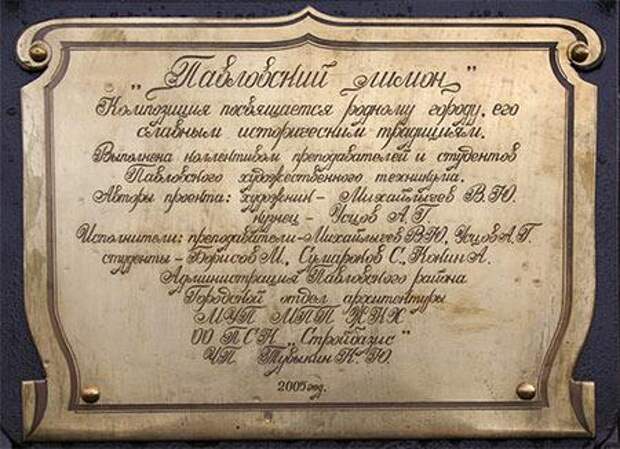 „Павловский лимон"
Композиция посвящается родному городу, его
славным историческим традициям.
Выполнена коллективом преподавателей и студентов
Павловского художественного техникума.
Авторы проекта: художник - Михайлычев В.Ю.
кузнец - Усцов А.Г.
Исполнители: преподаватели - Михайлычев В.Ю, Усцов А.Г.
студенты - Борисов М., Сумароков С., Кокин А.
Администрация Павловского района
Городской отдел архитектуры
МУП МПП ЖКХ
ОО ПСК „Стройбазис"
ЧП Тувыкин Н. Ю.
2005 год.